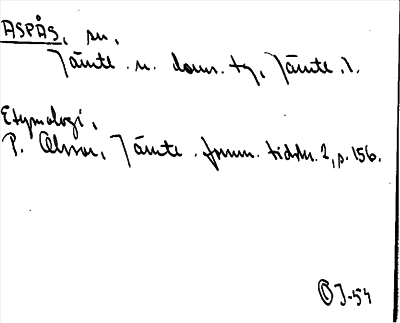 ASPÅS, sn.
Jämtl. u. dom. tg, Jämtl. 1.
Etymologi,
P. Olsson, Jämtl. fornm. tidskr. 2, s. 156.
OJ-54